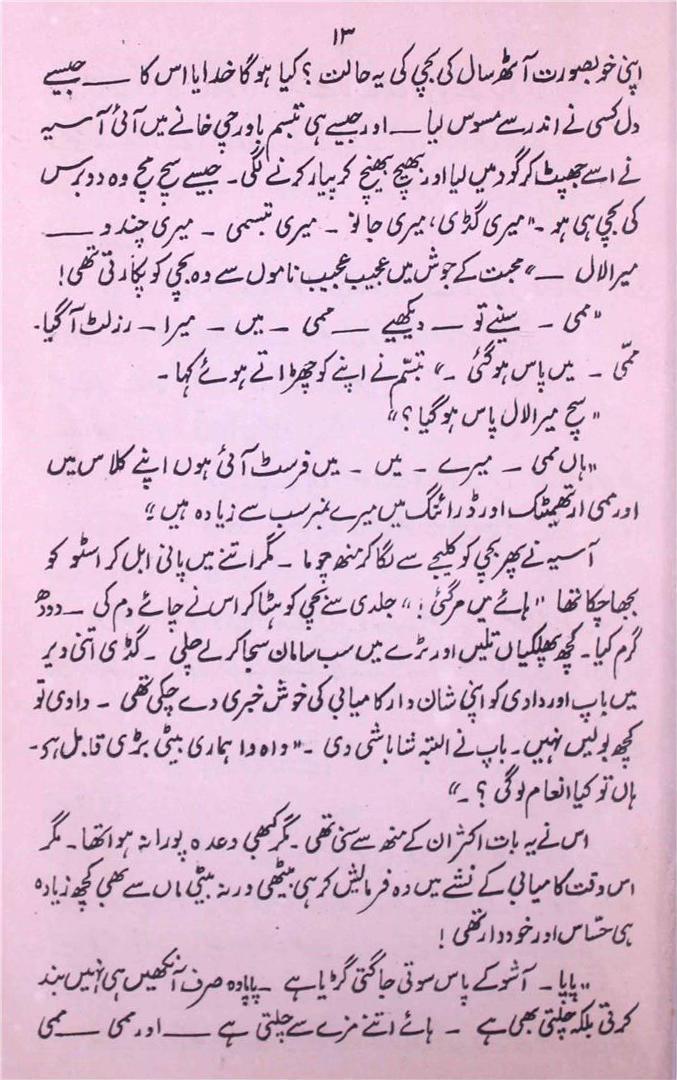 ۱۳
اپنی خوبصورت آٹھ سال کی بچی کی یہ حالت ؟ کیا ہو گا خدایا اس کا ــــ جیسے
دل کسی نے اندر سے مسوس لیا ــــ اور جیسے ہی تبسم باورچی خانے میں آئی آسیہ
نے اسے جھپٹ کر گود میں لیا اور بھینچ بھینچ کر پیار کرنے لگی۔ جیسے سچ مچ وہ دو برس
کی بچی ہی ہو ۔ "میری گڈی، میری جانو ۔ میری تبسمی ۔ میری چندو ــــ
میرا لال ــــ" محبت کے جوش میں عجیب عجیب ناموں سے وہ بچی کو پکارتی تھی!
"ممی ۔ سنیے تو ــــ دیکھیے ــــ ممی ۔ میں ۔ میرا ۔ رزلٹ آ گیا۔
ممّی ۔ میں پاس ہو گئی ۔" تبسّم نے اپنے کو چھڑاتے ہوئے کہا ۔
"سچ میرا لال پاس ہو گیا ؟"
"ہاں ممی ۔ میرے ۔ میں ۔ میں فرسٹ آئی ہوں اپنے کلاس میں
اور ممی ارتھمیٹک اور ڈرائنگ میں میرے نمبر سب سے زیادہ ہیں"
آسیہ نے پھر بچی کو کلیجے سے لگا کر منھ چوما ۔ مگر اتنے میں پانی ابل کر اسٹوو کو
بجھا چکا تھا "ہائے میں مر گئی !" جلدی سے بچی کو ہٹا کر اس نے چائے دم کی ــ دودھ
گرم کیا۔ کچھ پھلکیاں تلیں اور ٹرے میں سب سامان سجا کر لے چلی ۔ گڈی اتنی دیر
میں باپ اور دادی کو اپنی شان دار کامیابی کی خوش خبری دے چکی تھی ۔ دادی تو
کچھ بولیں نہیں۔ باپ نے البتہ شاباشی دی ۔ "واہ وا ہماری بیٹی بڑی قابل ہے۔
ہاں تو کیا انعام لو گی ؟ ۔"
اس نے یہ بات اکثر ان کے منھ سے سنی تھی ۔ مگر کبھی وعدہ پورا نہ ہوا تھا۔ مگر
اس وقت کامیابی کے نشے میں وہ فرمائیش کر ہی بیٹھی ورنہ بیٹی ماں سے بھی کچھ زیادہ
ہی حسّاس اور خود دار تھی !
"پاپا ۔ آشو کے پاس سوتی جاگتی گڑیا ہے ۔ پاپا وہ صرف آنکھیں ہی نہیں بند
کرتی بلکہ چلتی بھی ہے ۔ ہائے اتنے مزے سے چلتی ہے ــــ اور ممی ــــ ممی